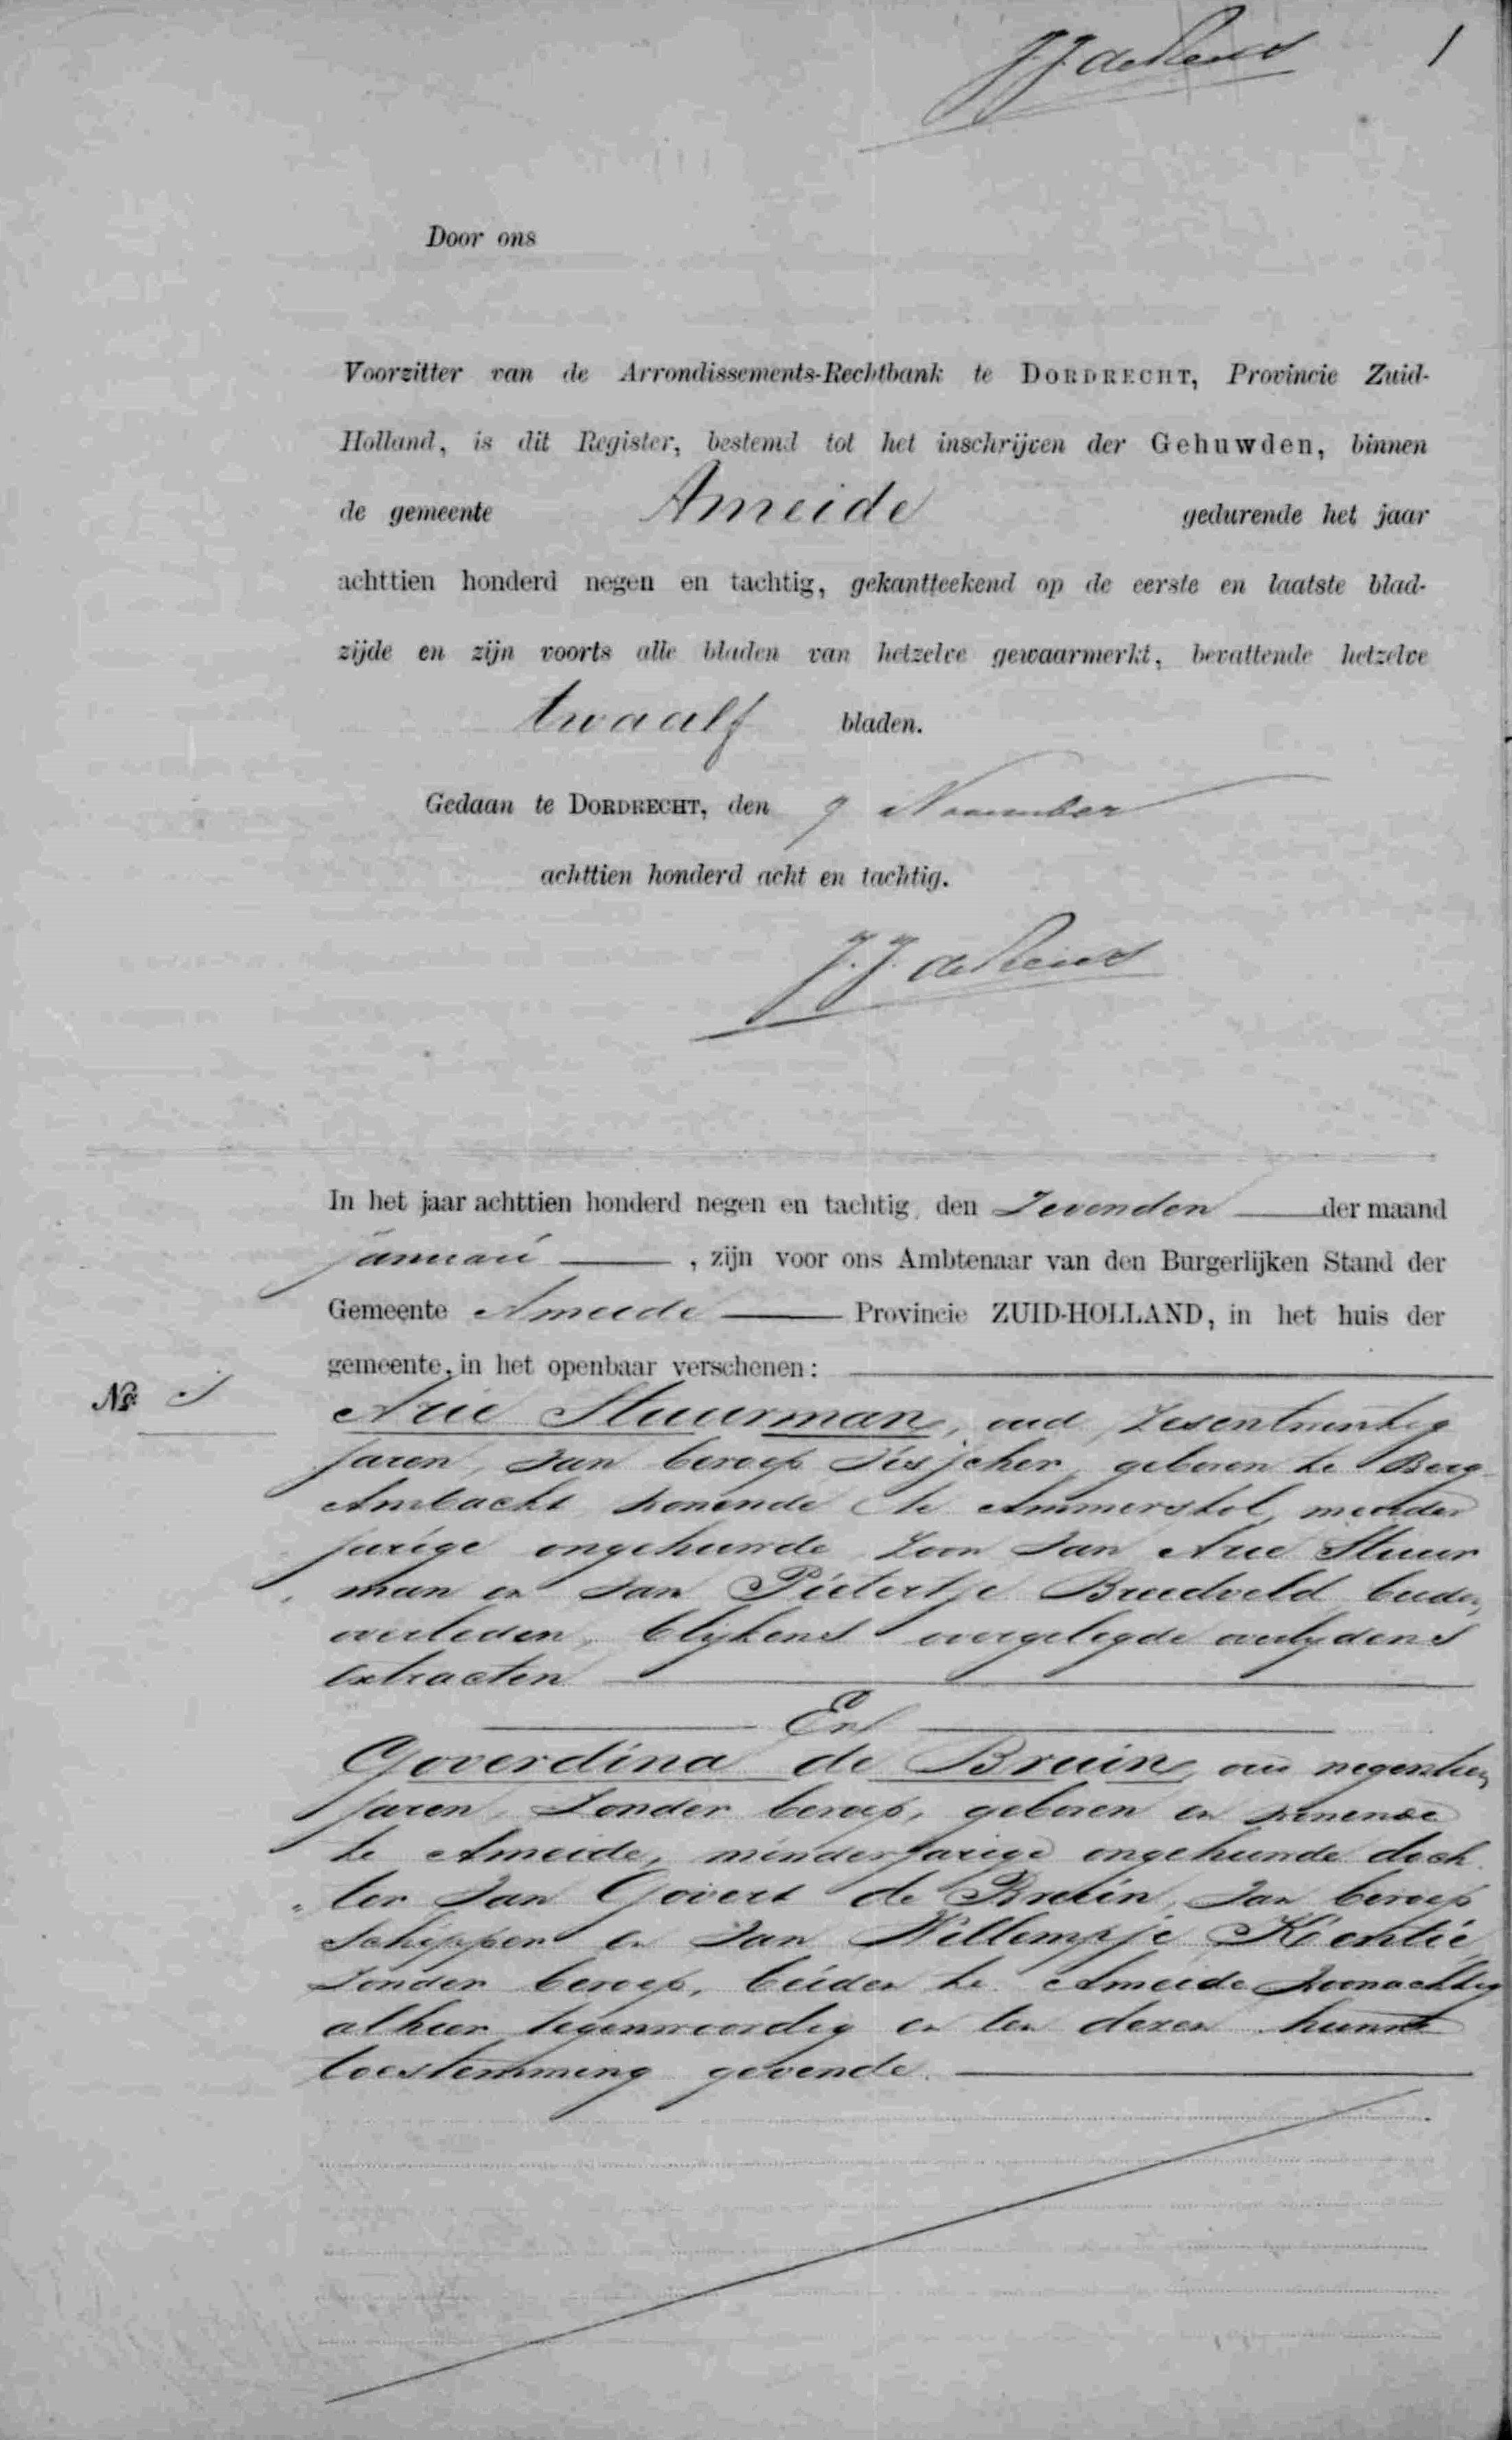 1
Door ons
Voorzitter van de Arrondissements-Rechtbank te DORDRECHT, Provincie Zuid-
Holland, is dit Register, bestemd tot het inschrijven der Gehuwden, binnen
de gemeente Ameide gedurende het jaar
achttien honderd negen en tachtig, gekantteekend op de eerste en laatste blad-
zijde en zijn voorts alle bladen van hetzelve gewaarmerkt, bevattende hetzelve
twaalf bladen.
Gedaan te DORDRECHT, den 9 November
achttien honderd acht en tachtig.
In het jaar achttien honderd negen en tachtig, den Zevenden der maand
Januari, zijn voor ons Ambtenaar van den Burgerlijken Stand der
Gemeente Ameide Provincie ZUID-HOLLAND, in het huis der
gemeente, in het openbaar verschenen:
No. 1
Arie Stuurman, oud Zesentwintig
jaren, van beroep Visscher, geboren te Berg-
Ambacht wonende te Ammerstol, meerder
jarige ongehuwde Zoon van Arie Stuur
man en van Pietertje Breedveld beiden
overleden, blijkens overgelegde overlydens
extracten
En
Goverdina de Bruin, oud negentien
jaren, Zonder beroep, geboren en wonende
te Ameide, minderjarige ongehuwde doch
ter van Govert de Bruin, van beroep
Schipper en van Willempje Kientie
Zonder beroep, beiden te Ameide woonachtig
alhier tegenwoordig en ten dezen hunne
toestemming gevende.